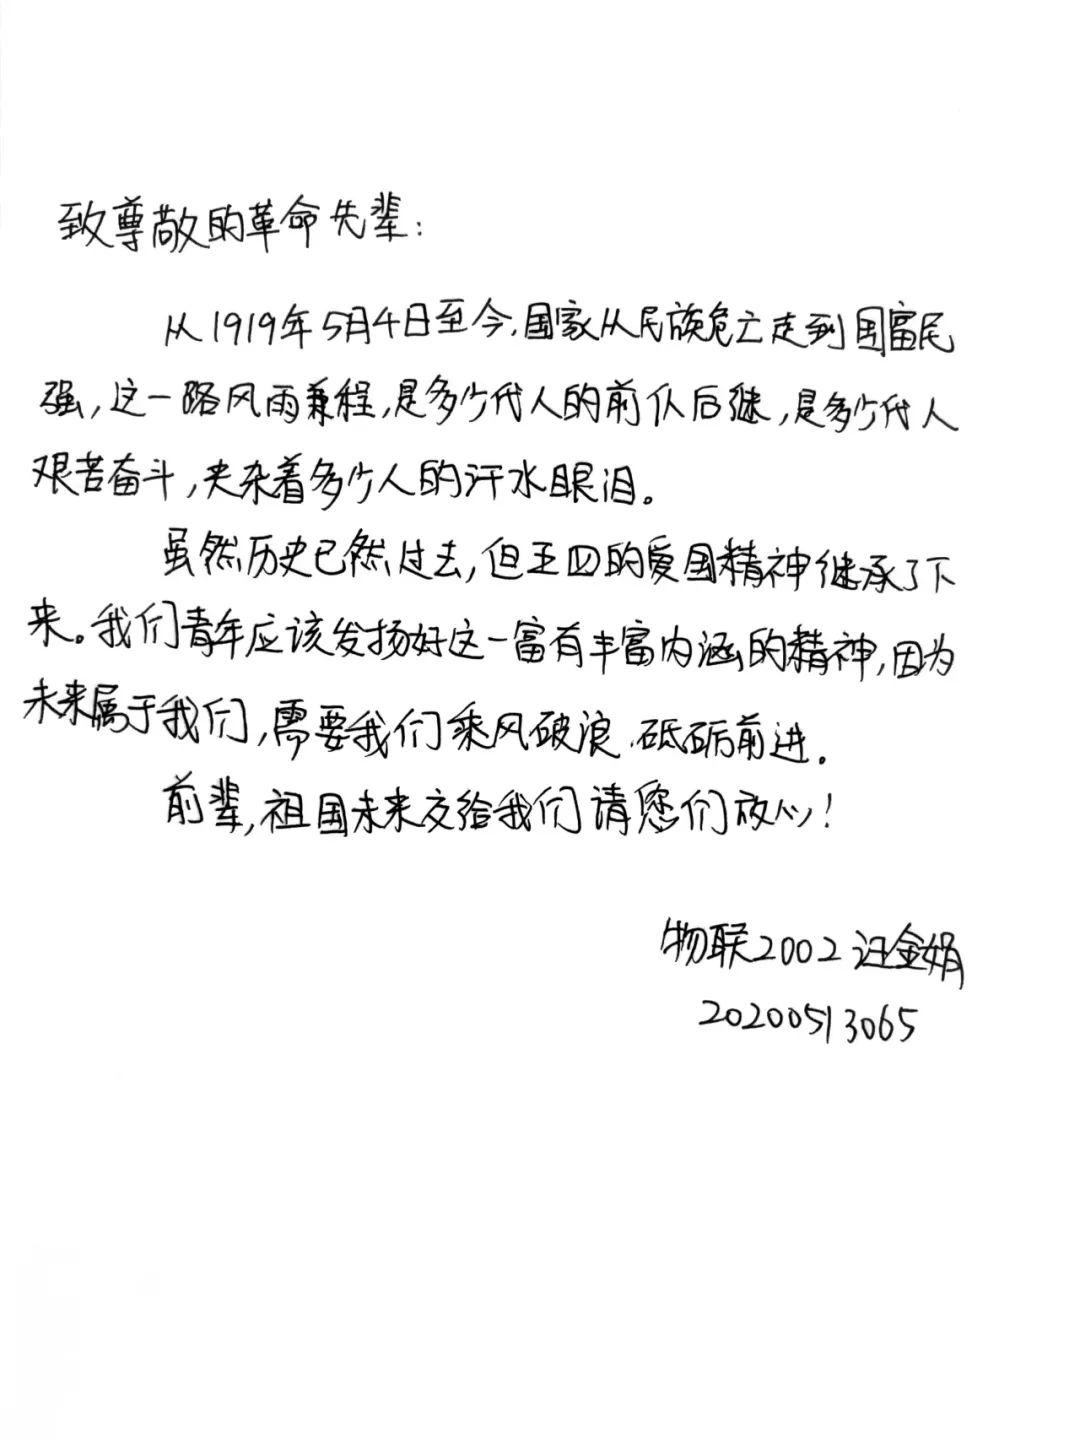 致尊敬的革命先辈：
从1919年5月4日至今，国家从民族危亡走到国富民
强，这一路风雨兼程，是多少代人的前仆后继，是多少代人
艰苦奋斗，夹杂着多少人的汗水眼泪。
虽然历史已然过去，但五四的爱国精神继承了下
来。我们青年应该发扬好这一富有丰富内涵的精神，因为
未来属于我们，需要我们乘风破浪、砥砺前进。
前辈，祖国未来交给我们请您们放心！
物联2002汪金娟
20200513065